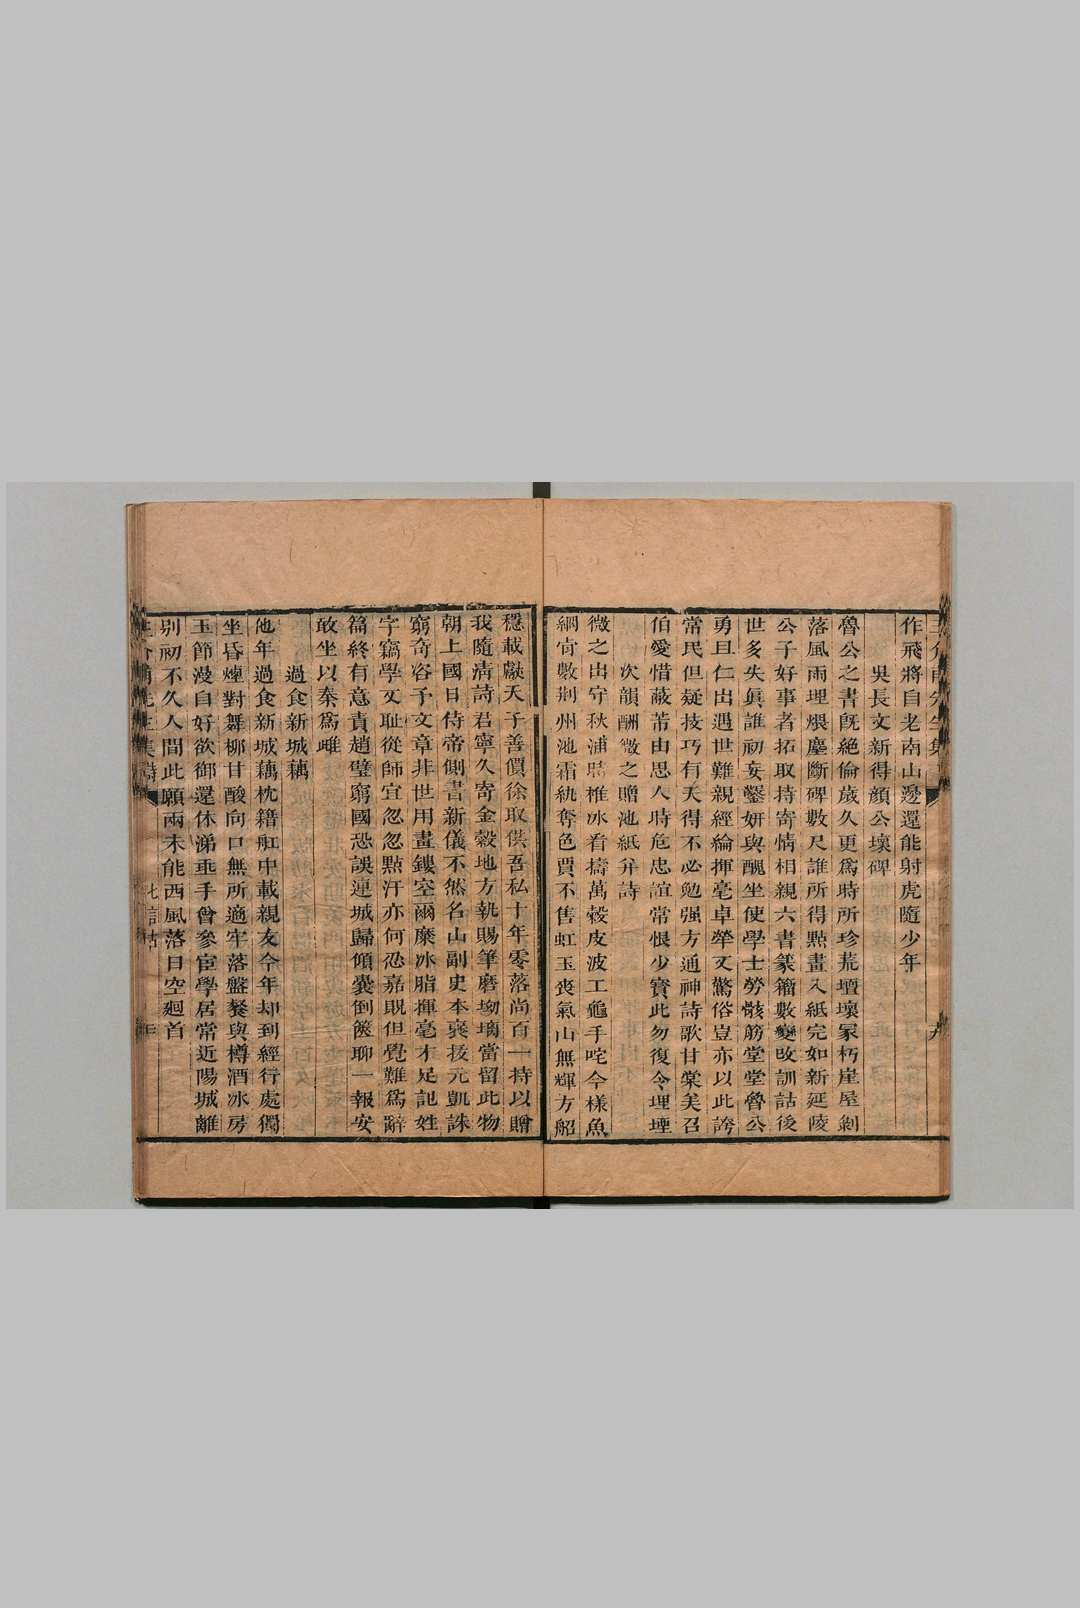 作飛將自老南山邊還能射虎隨少年
吳長文新得顏公壞碑
魯公之書旣絶倫歲久更爲時所珍荒壇壞冢朽崖屋剝
落風雨埋煨塵斷碑數尺誰所得點畫入紙完如新延陵
公子好事者拓取持寄情相親六書篆籀數變改訓詁後
世多失眞誰初妄鑿妍與醜坐使學士勞骸筋堂堂魯公
勇且仁出遇世難親經綸揮毫卓犖又驚俗豈亦以此誇
常民但疑技巧有天得不必勉强方通神詩歌甘棠美召
伯愛惜蔽芾由思人時危忠誼常恨少寶此勿復令埋堙
次韻酬微之贈池紙幷詩
微之出守秋浦時椎冰看擣萬穀皮波工龜手咤今樣魚
網肯數荆州池霜紈奪色賈不售虹玉喪氣山無輝方船
穩載獻天子善價徐取供吾私十年零落尚百一持以贈
我隨淸詩君寧久寄金穀地方執賜筆磨坳螭當留此物
朝上國日侍帝側書新儀不然名山副史本褒拔元凱誅
窮奇咨予文章非世用畫鏤空爾糜冰脂揮毫才足記姓
字竊學又耻從師宜忽忽點汗亦何忍嘉貺但覺難爲辭
篇終有意責趙璧窮國恐誤連城歸傾囊倒篋聊一報安
敢坐以秦爲雌
過食新城藕
他年過食新城藕枕籍舡中載親友今年却到經行處獨
坐昏煙對舞柳甘酸向口無所適牢落盤餐與樽酒冰房
玉節漫自好欲御還休涕垂手曾參宦學居常近陽城離
别初不久人間此願兩未能西風落日空廻首